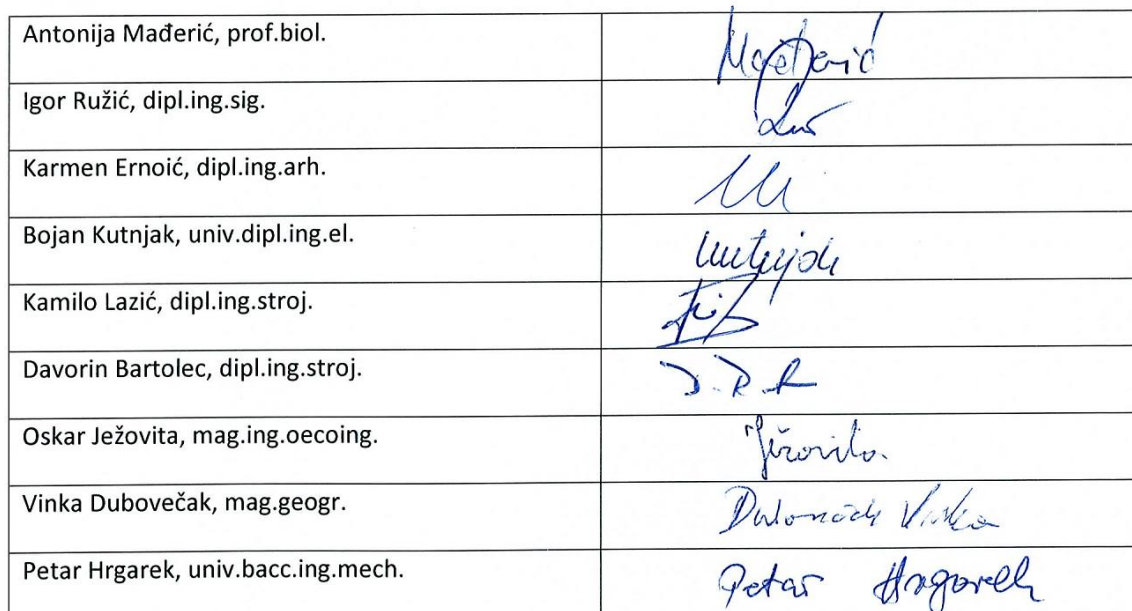 Antonija Mađerić, prof.biol.
Igor Ružić, dipl.ing.sig.
Karmen Ernoić, dipl.ing.arh.
Bojan Kutnjak, univ.dipl.ing.el.
Kamilo Lazić, dipl.ing.stroj.
Davorin Bartolec, dipl.ing.stroj.
Oskar Ježovita, mag.ing.oecoing.
Ježovita
Vinka Dubovečak, mag.geogr.
Petar Hrgarek, univ.bacc.ing.mech.
Petar Hrgarek